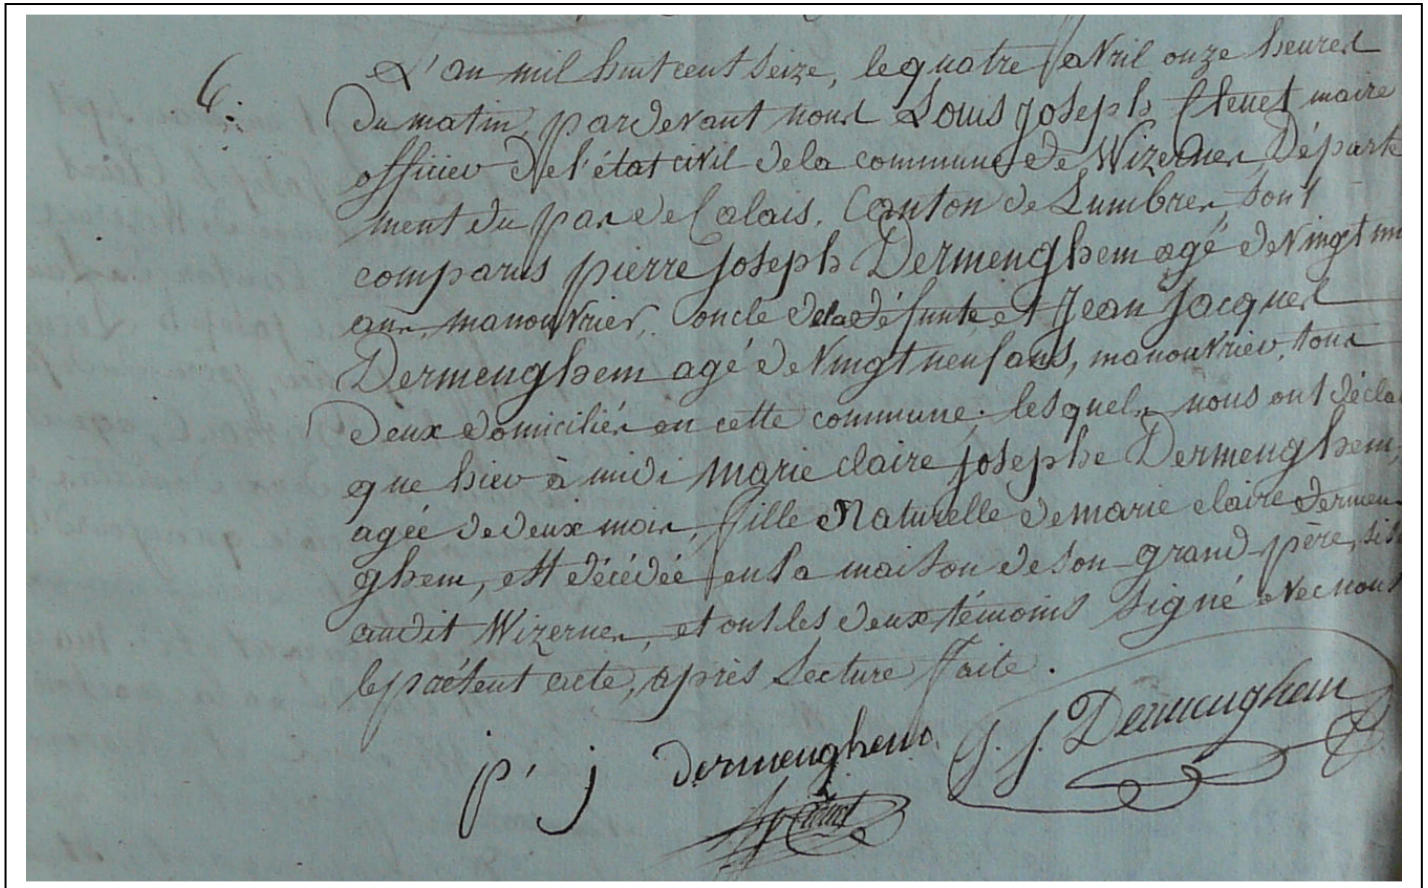 6:
L'an mil huit cent Seize, le quatre avril onze heures
Du matin, pardevant nous Louis Joseph Clenet maire
officier de l'état civil de la commune de Wizernes, Départe
ment du pas de Calais, Canton de Lumbres, sont
comparus pierre Joseph Dermenghem agé de vingt
ans, manouvrier, oncle de la défunte et Jean Jacques
Dermenghem agé de vingt neuf ans, manouvrier, tous
Deux domiciliés en cette commune, lesquels nous ont décla
que hier à midi marie claire josephe Dermenghem,
agée de deux mois, fille Naturelle de marie claire dermen
ghem, est décédée en la maison de son grand père, sis
audit Wizernes, et ont les deux témoins signé avec nous
le présent acte, après lecture faite.
p. j dermenghem J. J. Dermenghem